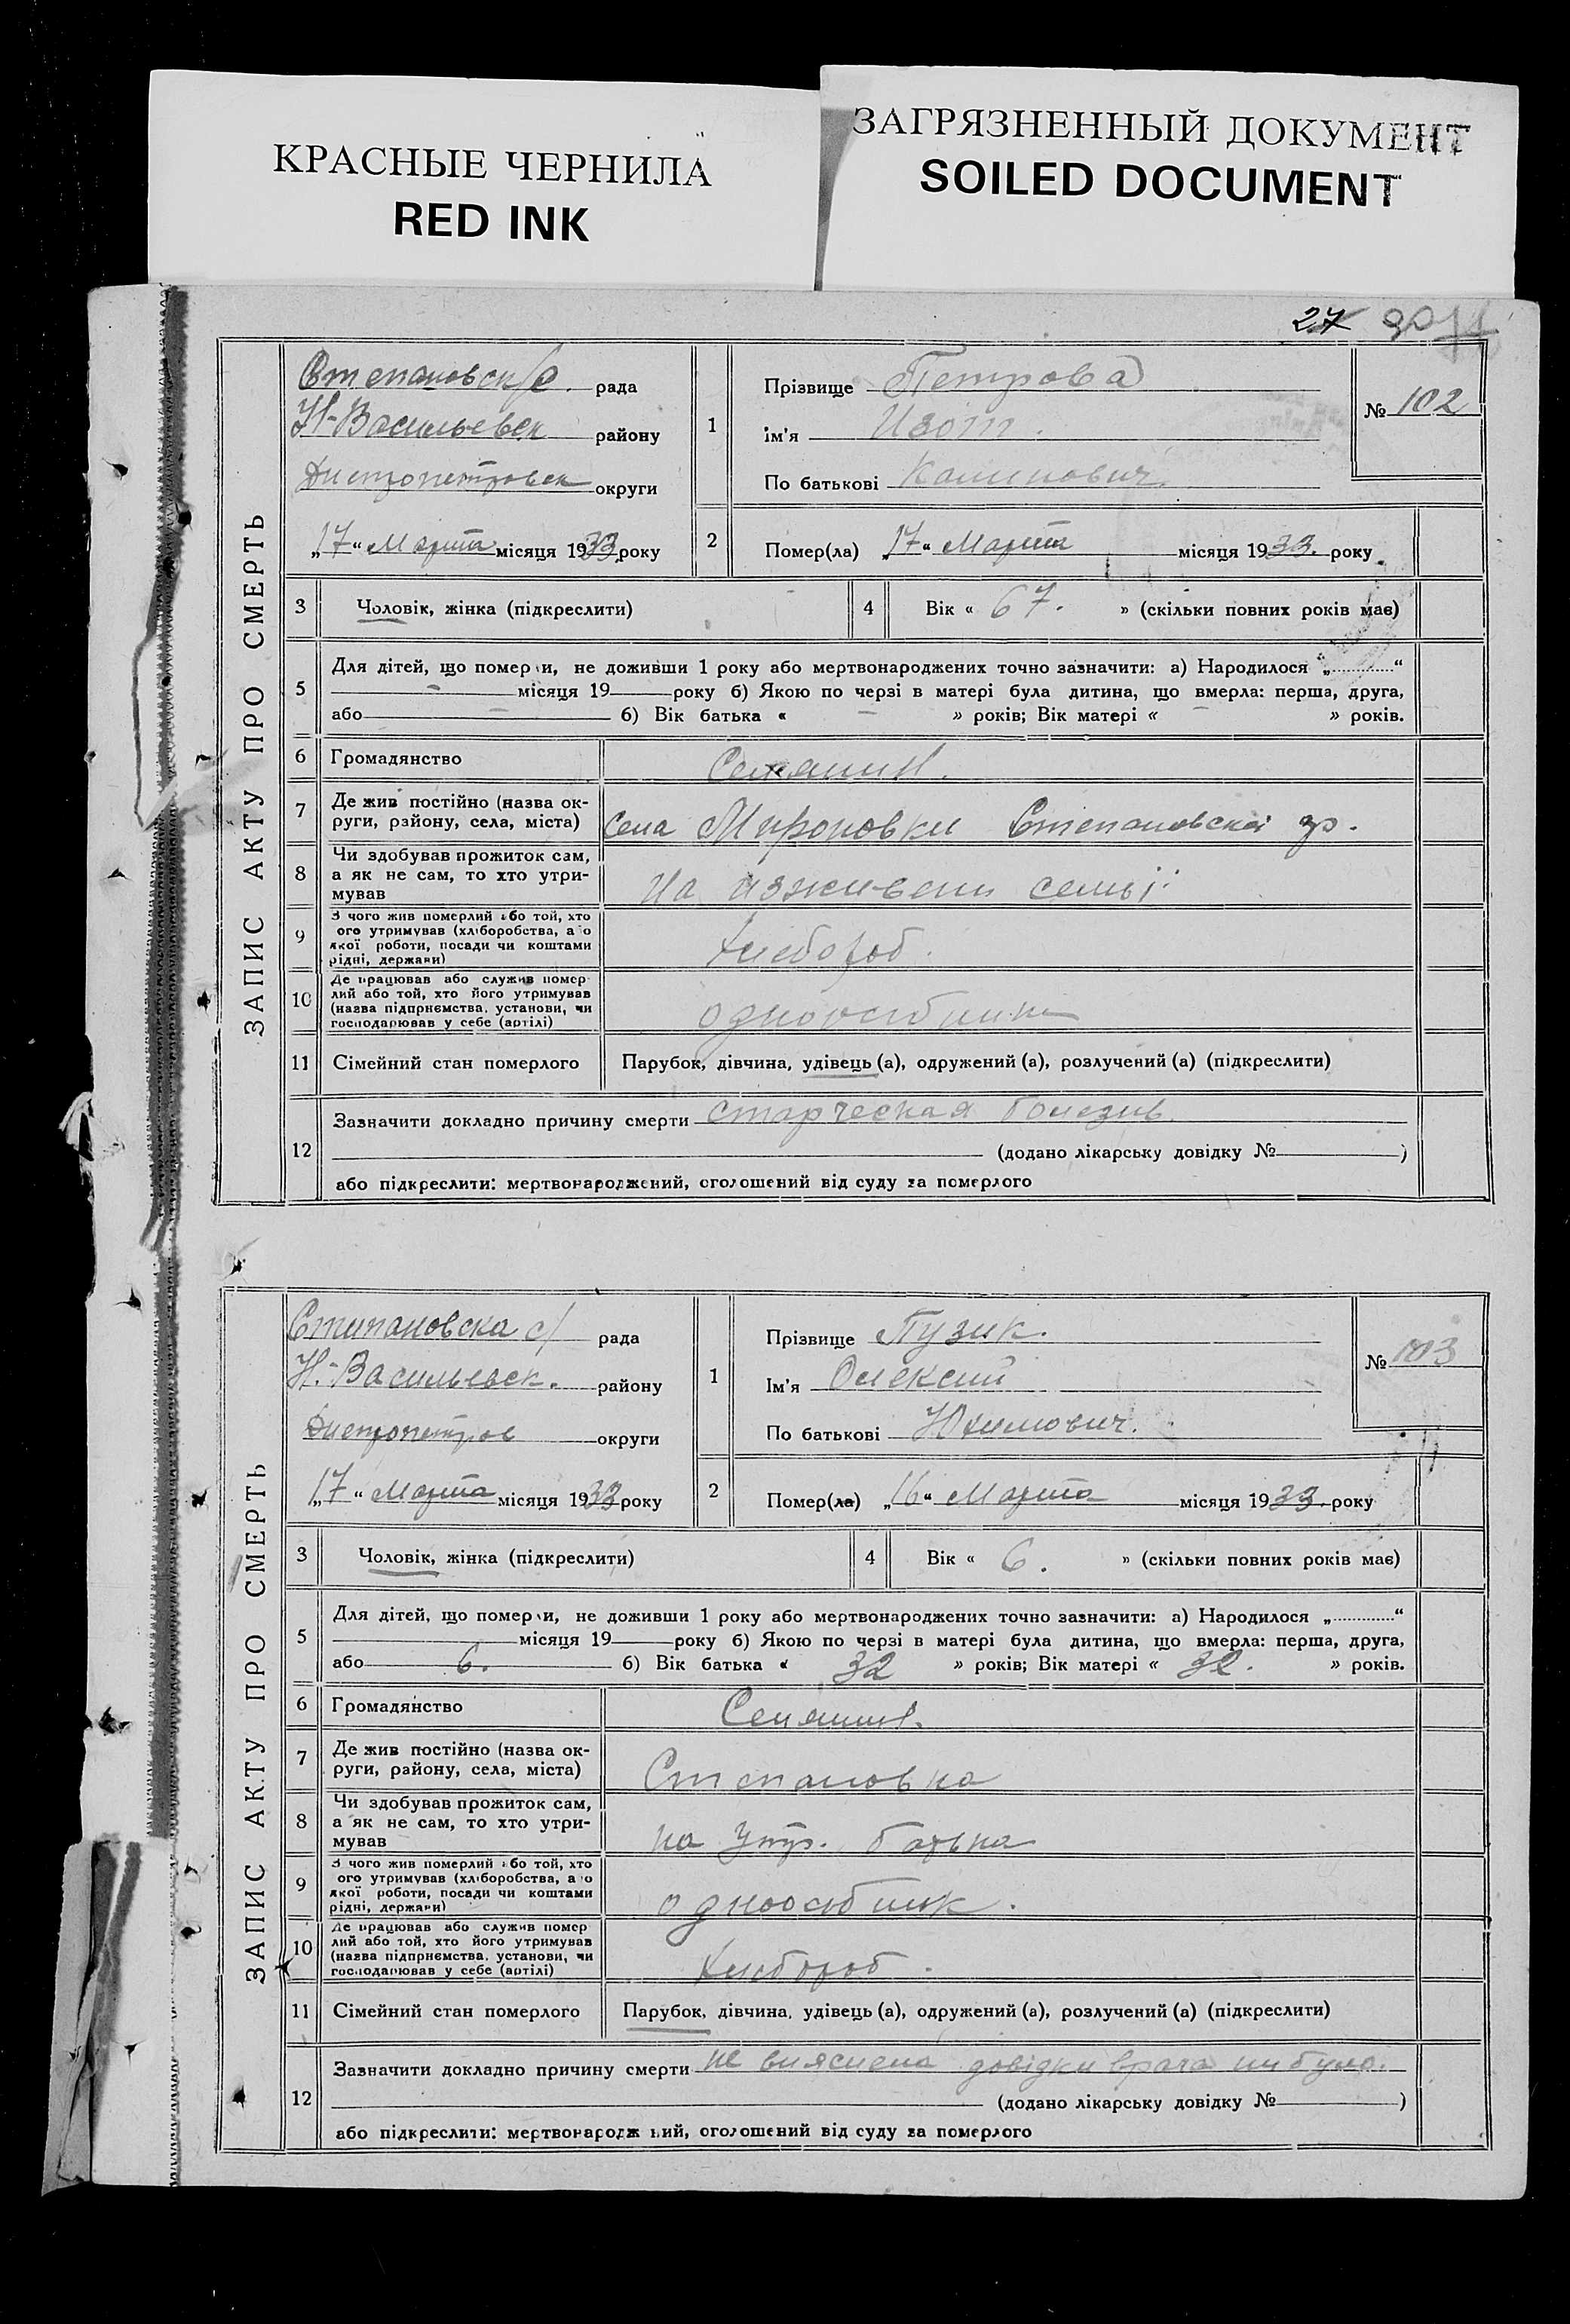 КРАСНЫЕ ЧЕРНИЛА
RED INK
ЗАГРЯЗНЕННЫЙ ДОКУМЕНТ
SOILED DOCUMENT
27
ЗАПИС АКТУ ПРО СМЕРТЬ
Степановск с/ рада
Н-Васильевск району
Днепропетровск округи
„17“ Марта місяця 1933 року
1
Прізвище Петрова
ім'я Изот.
По батькові Калинович
№ 102
2 Помер(ла) „17“ Марта місяця 1933. року
3 Чоловік, жінка (підкреслити)
4 Вік « 67. » (скільки повних років має)
5 Для дітей, що померли, не доживши 1 року або мертвонароджених точно зазначити: а) Народилося „ “
— місяця 19 року б) Якою по черзі в матері була дитина, що вмерла: перша, друга,
або — б) Вік батька « — » років; Вік матері « — » років.
6 Громадянство Селянин.
7 Де жив постійно (назва ок-
руги, району, села, міста) Села Мироновки Степановской
8 Чи здобував прожиток сам,
а як не сам, то хто утри-
мував На изживени семьі
9 З чого жив померлий або той, хто
ого утримував (хліборобства, або
якої роботи, посади чи коштами
рідні, держави) Хлебороб.
10 Де працював або служив помер-
лий або той, хто його утримував
(назва підприємства, установи, чи
господарював у себе (артілі) одноосібник
11 Сімейний стан померлого Парубок, дівчина, удівець (а), одружений (а), розлучений (а) (підкреслити)
12 Зазначити докладно причину смерти старческая болезнь
(додано лікарську довідку № )
або підкреслити: мертвонароджений, оголошений від суду за померлого
ЗАПИС АКТУ ПРО СМЕРТЬ
Степановска с/ рада
Н.-Васильевск. району
Днепропетров округи
„17“ Марта місяця 1933 року
1
Прізвище Пузик.
Ім'я Олексій
По батькові Юхимович.
№ 103
2 Помер(ла) „16“ Марта місяця 1933. року
3 Чоловік, жінка (підкреслити)
4 Вік « 6. » (скільки повних років має)
5 Для дітей, що померли, не доживши 1 року або мертвонароджених точно зазначити: а) Народилося „ “
місяця 19 року б) Якою по черзі в матері була дитина, що вмерла: перша, друга,
або 6. б) Вік батька « 32 » років; Вік матері « 32. » років.
6 Громадянство Селянин.
7 Де жив постійно (назва ок-
руги, району, села, міста) Степановка
8 Чи здобував прожиток сам,
а як не сам, то хто утри-
мував на утр. батька
9 З чого жив померлий або той, хто
ого утримував (хліборобства, або
якої роботи, посади чи коштами
рідні, держави) одноосібник.
10 Де працював або служив помер
лий або той, хто його утримував
(назва підприємства, установи, чи
господарював у себе (артілі) Хлебороб.
11 Сімейний стан померлого Парубок, дівчина, удівець (а), одружений (а), розлучений (а) (підкреслити)
12 Зазначити докладно причину смерти не вияснена довідки врача ни було.
(додано лікарську довідку № )
або підкреслити: мертвонароджений, оголошений від суду за померлого